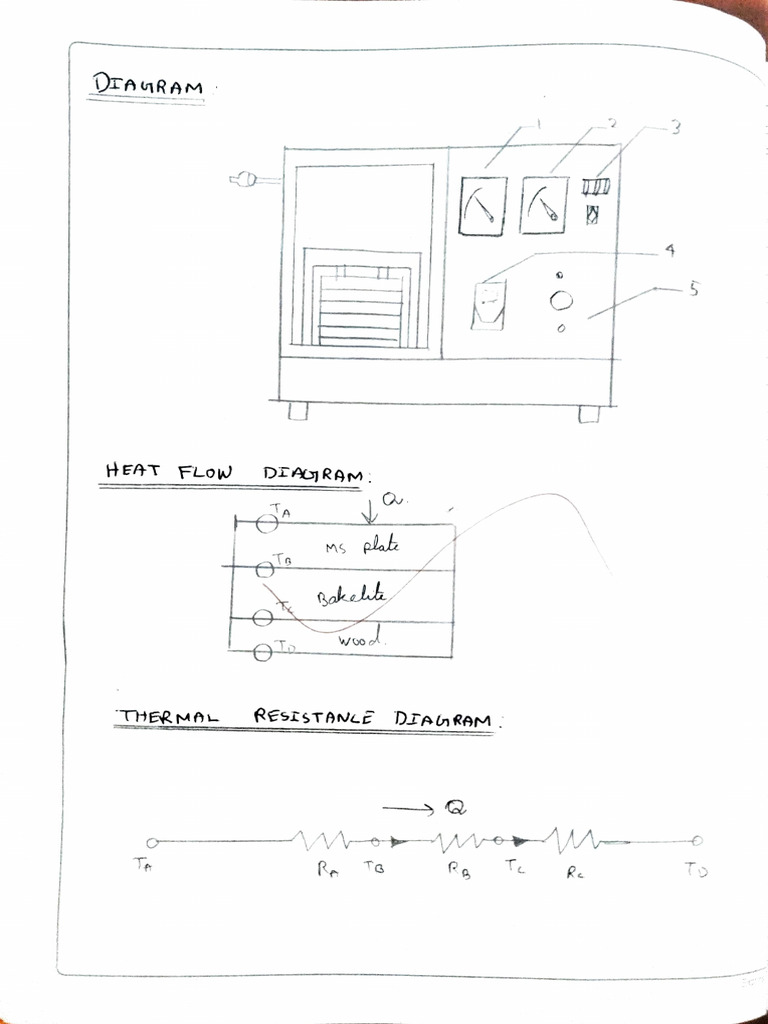 DIAGRAM.
1 2 3
4
5
HEAT FLOW DIAGRAM:
Q.
TA
MS plate
TB
Bakelite
Tc
wood.
TD
THERMAL RESISTANCE DIAGRAM:
Q
TA RA TB RB Tc Rc TD